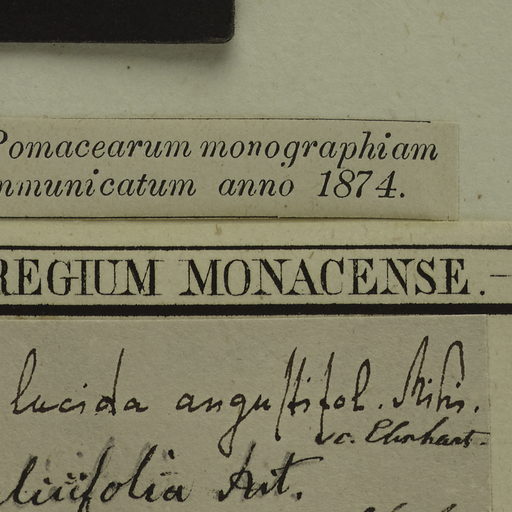 Pomacearum monographiam
mmunicatum anno 1874.
REGIUM MONACENSE.—
lucida angustifol. Mihi.
sc. Ehrhart.
licifolia Ait.